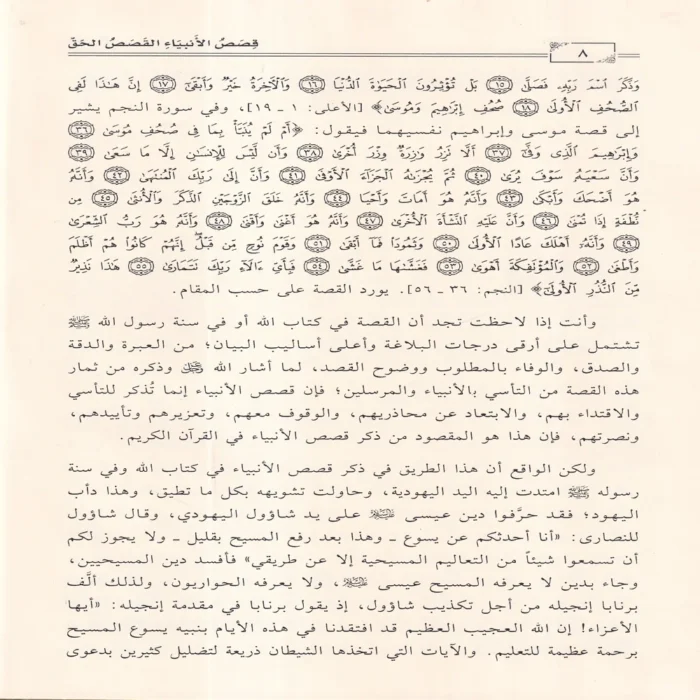 ٨
قِصَصُ الأَنبيَاءِ القَصَصُ الحَقّ
وَذَكَرَ اسْمَ رَبِّهِ فَصَلَّىٰ ﴿١٥﴾ بَلْ تُؤْثِرُونَ الْحَيَوٰةَ الدُّنْيَا ﴿١٦﴾ وَالْآخِرَةُ خَيْرٌ وَأَبْقَىٰ ﴿١٧﴾ إِنَّ هَٰذَا لَفِي
الصُّحُفِ الْأُولَىٰ ﴿١٨﴾ صُحُفِ إِبْرَاهِيمَ وَمُوسَىٰ﴾ [الأعلى: ١ - ١٩]، وفي سورة النجم يشير
إلى قصة موسى وإبراهيم نفسيهما فيقول: ﴿أَمْ لَمْ يُنَبَّأْ بِمَا فِي صُحُفِ مُوسَىٰ ﴿٣٦﴾
وَإِبْرَاهِيمَ الَّذِي وَفَّىٰ ﴿٣٧﴾ أَلَّا تَزِرُ وَازِرَةٌ وِزْرَ أُخْرَىٰ ﴿٣٨﴾ وَأَن لَّيْسَ لِلْإِنسَانِ إِلَّا مَا سَعَىٰ ﴿٣٩﴾
وَأَنَّ سَعْيَهُ سَوْفَ يُرَىٰ ﴿٤٠﴾ ثُمَّ يُجْزَاهُ الْجَزَاءَ الْأَوْفَىٰ ﴿٤١﴾ وَأَنَّ إِلَىٰ رَبِّكَ الْمُنتَهَىٰ ﴿٤٢﴾ وَأَنَّهُ
هُوَ أَضْحَكَ وَأَبْكَىٰ ﴿٤٣﴾ وَأَنَّهُ هُوَ أَمَاتَ وَأَحْيَا ﴿٤٤﴾ وَأَنَّهُ خَلَقَ الزَّوْجَيْنِ الذَّكَرَ وَالْأُنثَىٰ ﴿٤٥﴾ مِن
نُّطْفَةٍ إِذَا تُمْنَىٰ ﴿٤٦﴾ وَأَنَّ عَلَيْهِ النَّشْأَةَ الْأُخْرَىٰ ﴿٤٧﴾ وَأَنَّهُ هُوَ أَغْنَىٰ وَأَقْنَىٰ ﴿٤٨﴾ وَأَنَّهُ هُوَ رَبُّ الشِّعْرَىٰ
﴿٤٩﴾ وَأَنَّهُ أَهْلَكَ عَادًا الْأُولَىٰ ﴿٥٠﴾ وَثَمُودَا فَمَا أَبْقَىٰ ﴿٥١﴾ وَقَوْمَ نُوحٍ مِّن قَبْلُ إِنَّهُمْ كَانُوا هُمْ أَظْلَمَ
وَأَطْغَىٰ ﴿٥٢﴾ وَالْمُؤْتَفِكَةَ أَهْوَىٰ ﴿٥٣﴾ فَغَشَّاهَا مَا غَشَّىٰ ﴿٥٤﴾ فَبِأَيِّ آلَاءِ رَبِّكَ تَتَمَارَىٰ ﴿٥٥﴾ هَٰذَا نَذِيرٌ
مِّنَ النُّذُرِ الْأُولَىٰ﴾ [النجم: ٣٦ - ٥٦]. يورد القصة على حسب المقام.
وأنت إذا لاحظت تجد أن القصة في كتاب الله أو في سنة رسول الله ﷺ
تشتمل على أرقى درجات البلاغة وأعلى أساليب البيان؛ من العبرة والدقة
والصدق، والوفاء بالمطلوب ووضوح القصد، لما أشار الله ﷻ وذكره من ثمار
هذه القصة من التأسي بالأنبياء والمرسلين؛ فإن قصص الأنبياء إنما تُذكر للتأسي
والاقتداء بهم، والابتعاد عن محاذريهم، والوقوف معهم، وتعزيرهم وتأييدهم،
ونصرتهم، فإن هذا هو المقصود من ذكر قصص الأنبياء في القرآن الكريم.
ولكن الواقع أن هذا الطريق في ذكر قصص الأنبياء في كتاب الله وفي سنة
رسوله ﷺ امتدت إليه اليد اليهودية، وحاولت تشويهه بكل ما تطيق، وهذا دأب
اليهود؛ فقد حرَّفوا دين عيسى عليه السلام على يد شاؤول اليهودي، وقال شاؤول
للنصارى: «أنا أحدثكم عن يسوع ـ وهذا بعد رفع المسيح بقليل ـ ولا يجوز لكم
أن تسمعوا شيئاً من التعاليم المسيحية إلا عن طريقي» فأفسد دين المسيحيين،
وجاء بدين لا يعرفه المسيح عيسى عليه السلام، ولا يعرفه الحواريون، ولذلك ألَّف
برنابا إنجيله من أجل تكذيب شاؤول، إذ يقول برنابا في مقدمة إنجيله: «أيها
الأعزاء! إن الله العجيب العظيم قد افتقدنا في هذه الأيام بنبيه يسوع المسيح
برحمة عظيمة للتعليم. والآيات التي اتخذها الشيطان ذريعة لتضليل كثيرين بدعوى